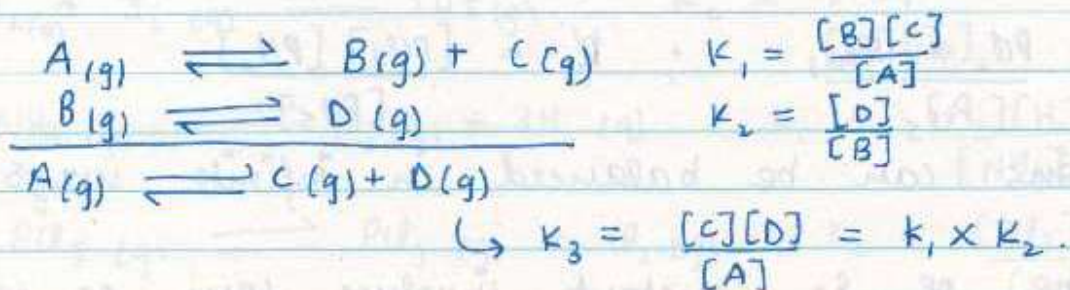 A(g) ⇌ B(g) + C(g) K₁ = [B][C] / [A]
B(g) ⇌ D(g) K₂ = [D] / [B]
A(g) ⇌ C(g) + D(g)
↳ K₃ = [C][D] / [A] = K₁ × K₂.